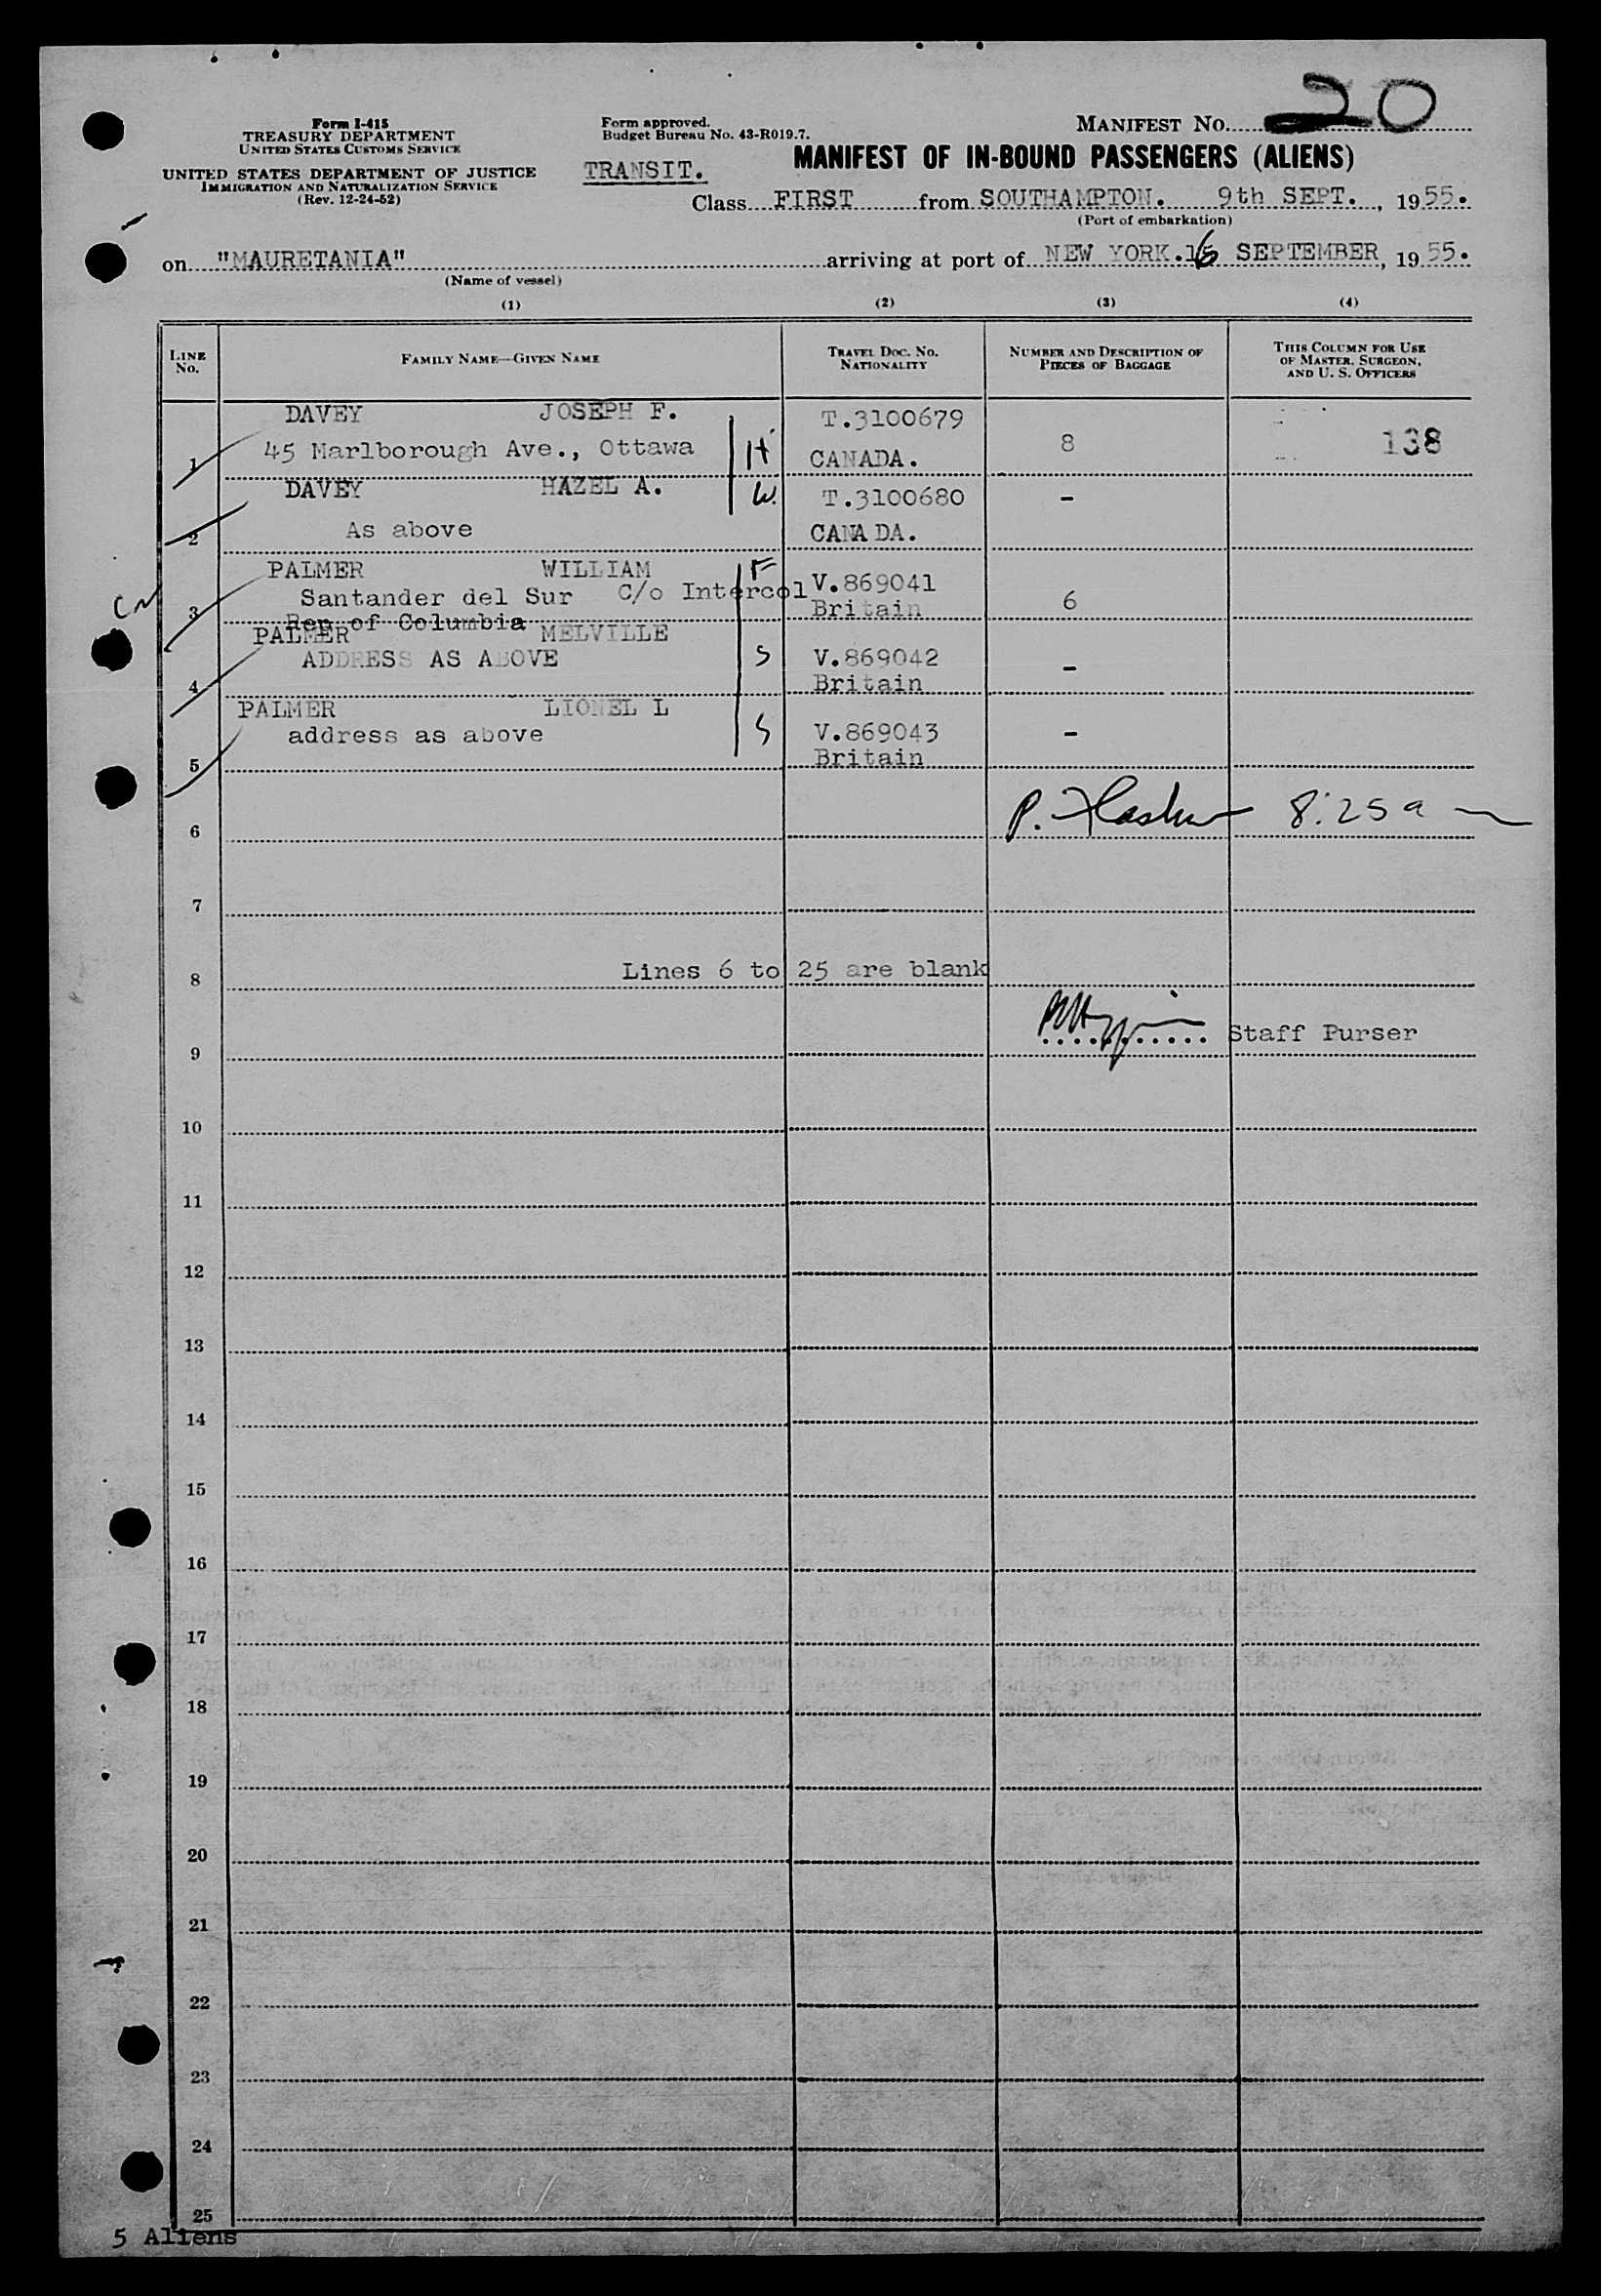 MANIFEST NO. 20
Form I-415
TREASURY DEPARTMENT
UNITED STATES CUSTOMS SERVICE
UNITED STATES DEPARTMENT OF JUSTICE
IMMIGRATION AND NATURALIZATION SERVICE
(Rev. 12-24-52)
Form approved.
Budget Bureau No. 43-R019.7.
MANIFEST OF IN-BOUND PASSENGERS (ALIENS)
TRANSIT.
Class FIRST from SOUTHAMPTON. 9th SEPT., 1955.
(Port of embarkation)
on "MAURETANIA" arriving at port of NEW YORK. 16 SEPTEMBER, 1955.
(Name of vessel)
(1) (2) (3) (4)
LINE NO.
FAMILY NAME—GIVEN NAME
TRAVEL DOC. NO. NATIONALITY
NUMBER AND DESCRIPTION OF PIECES OF BAGGAGE
THIS COLUMN FOR USE OF MASTER, SURGEON, AND U. S. OFFICERS
DAVEY JOSEPH F. T.3100679
1 45 Marlborough Ave., Ottawa H CANADA. 8 138
DAVEY HAZEL A. W. T.3100680 -
2 As above CANADA.
PALMER WILLIAM F V.869041
CN 3 Santander del Sur C/o Intercol Britain 6
Rep of Columbia
PALMER MELVILLE
4 ADDRESS AS ABOVE S V.869042 -
Britain
PALMER LIONEL L
address as above S V.869043 -
5 Britain
6 P. 8:25 a
7
8 Lines 6 to 25 are blank
9 Staff Purser
10
11
12
13
14
15
16
17
18
19
20
21
22
23
24
25
5 Aliens